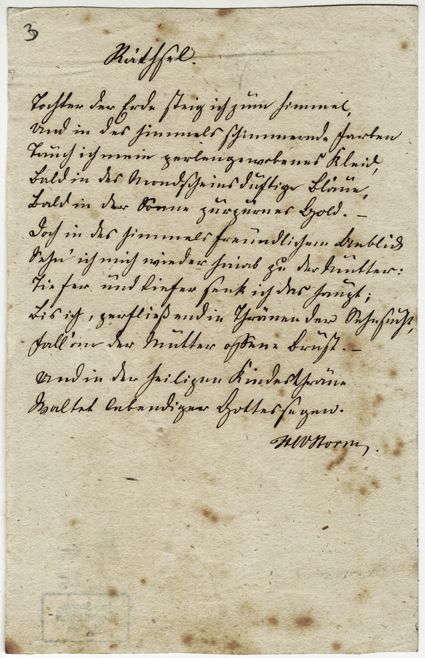 3
Räthsel.
Tochter der Erde steig ich zum Himmel,
Und in des Himmels schimmernde Farben
Tauch ich mein perlengewobenes Kleid,
Bald in des Mondscheins duftige Bläue,
Bald in der Sonne purpurnes Gold. –
Doch in des Himmels freundlichem Anblick
Sehn' ich mich wieder hinab zu der Mutter:
Tiefer und tiefer senk ich das Haupt;
Bis ich, zerfließend in Thränen der Sehnsucht,
Fall' in der Mutter offene Brust. –
Und in der heiligen Kindesthräne
Waltet lebendiger Gottessegen.
ThWStorm.